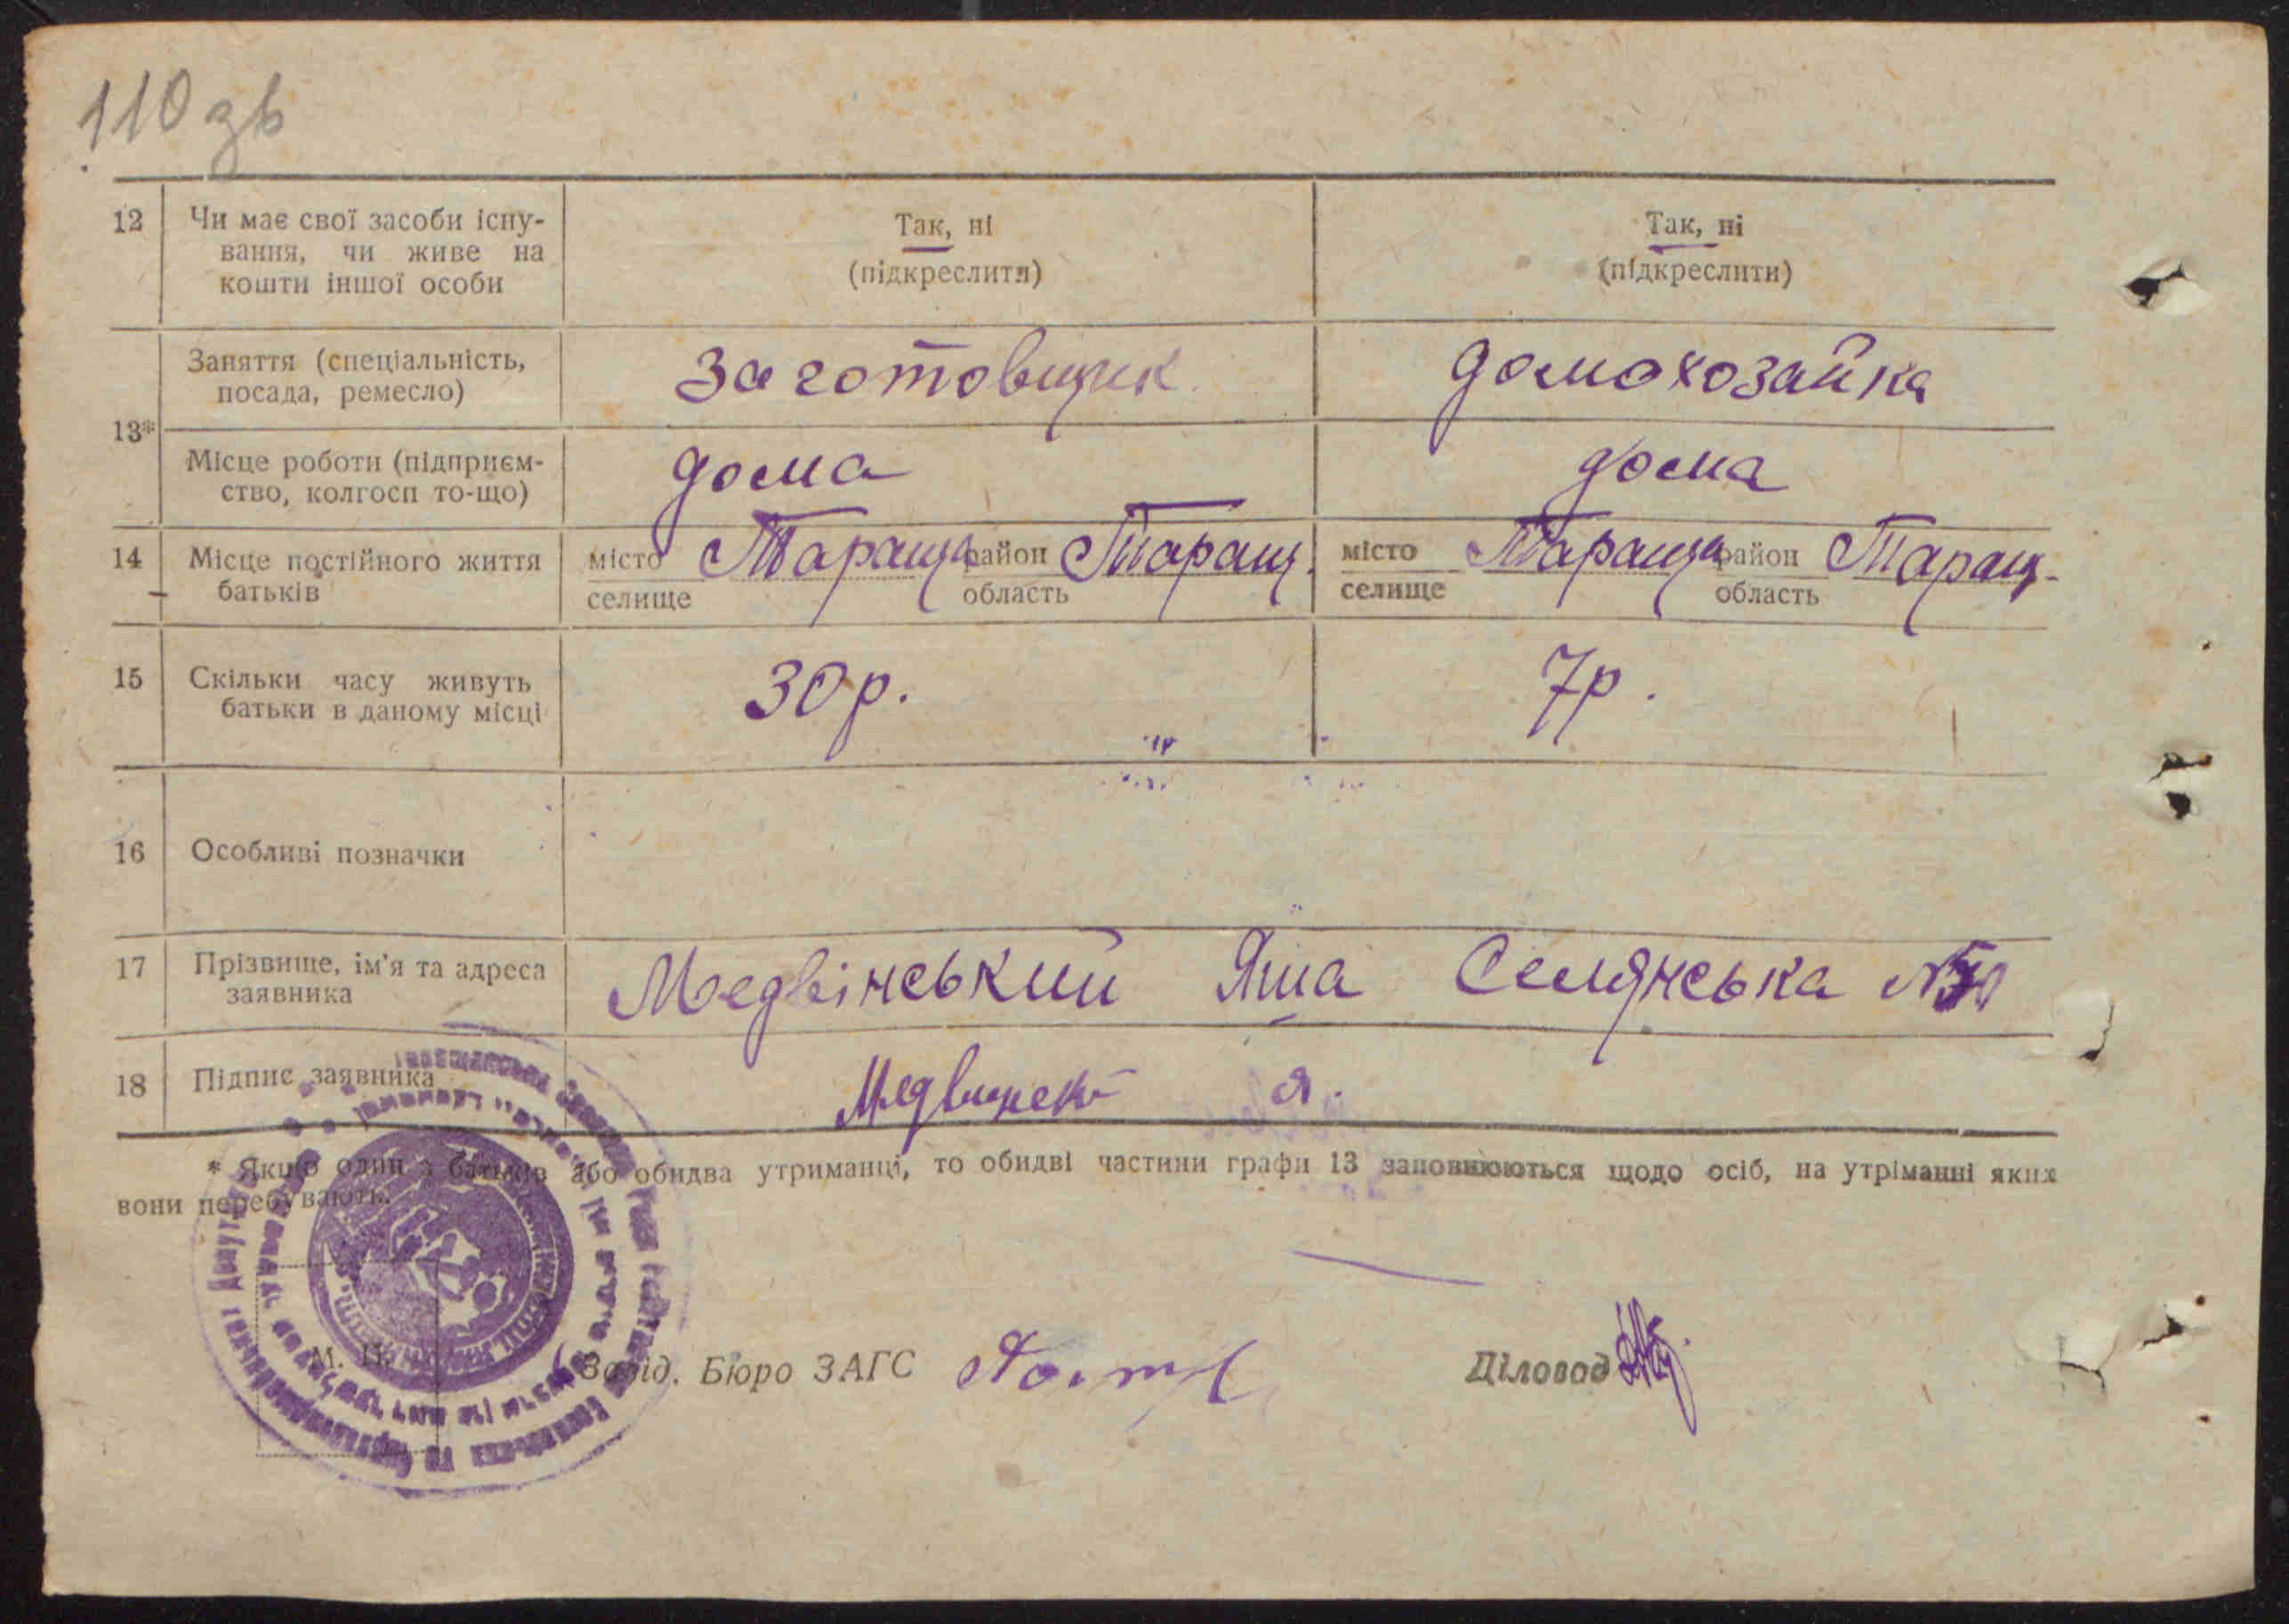 110 зв
12 Чи має свої засоби існу- Так, ні Так, ні
вання, чи живе на (підкреслити) (підкреслити)
кошти іншої особи
13*
Заняття (спеціальність, Заготовщик домохозайка
посада, ремесло)
Місце роботи (підприєм- дома дома
ство, колгосп то-що)
14 Місце постійного життя місто Тараща район Таращ. місто Тараща район Таращ-
батьків селище область селище область
15 Скільки часу живуть 30 р. 7 р.
батьки в даному місці
16 Особливі позначки
17 Прізвище, ім'я та адреса Медвінський Яша Селянська №
заявника
18 Підпис заявника Медвинск- Я.
* Якщо один з батьків або обидва утриманці, то обидві частини графи 13 заповнюються щодо осіб, на утріманні яких
вони перебувають.
М. П. Завід. Бюро ЗАГС Діловод